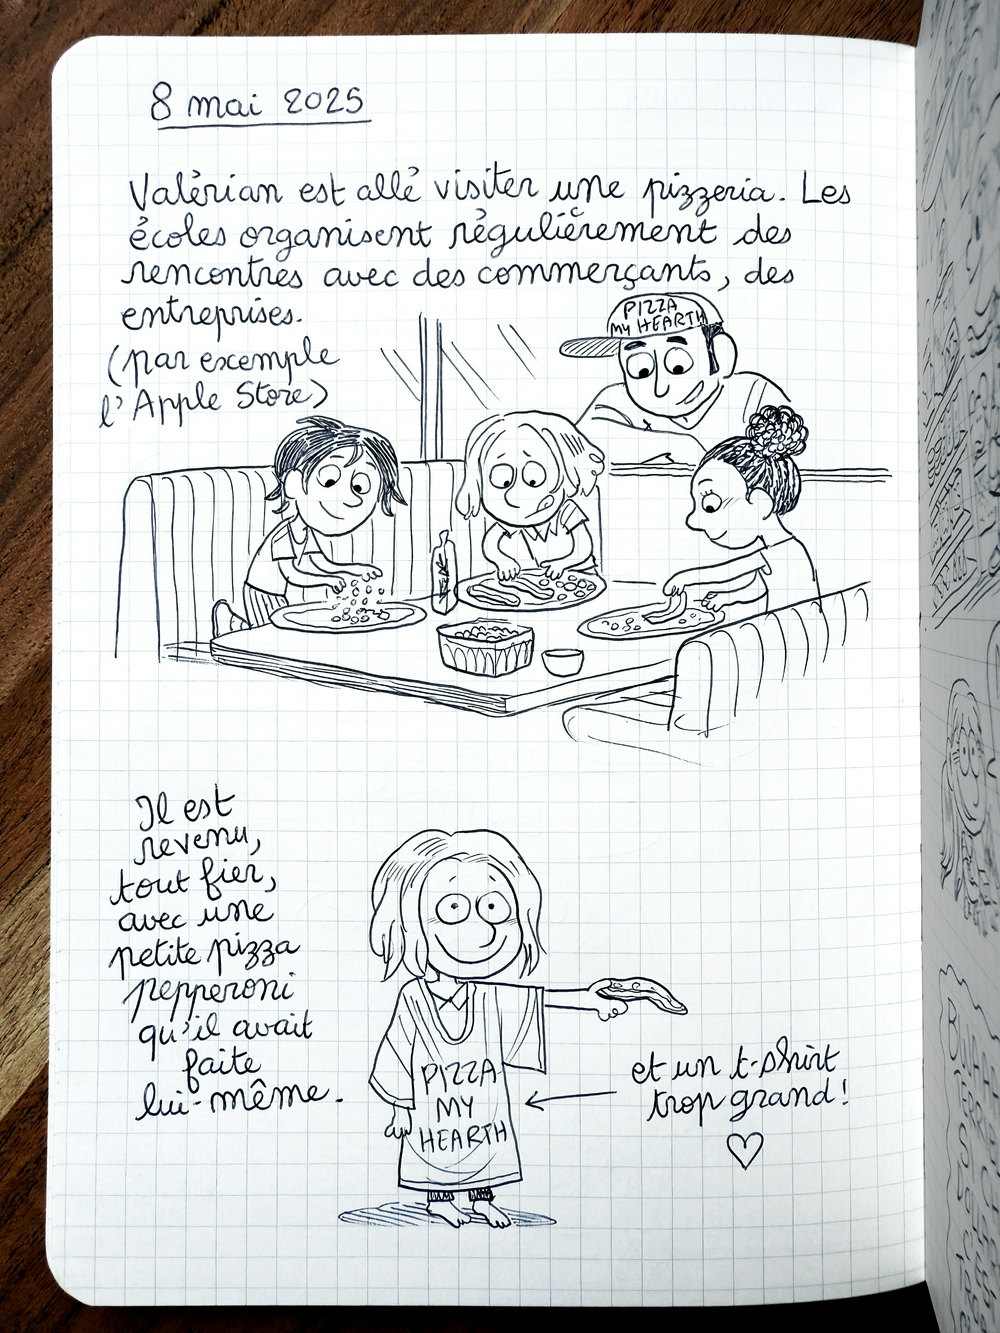 8 mai 2025
Valérian est allé visiter une pizzeria. Les
écoles organisent régulièrement des
rencontres avec des commerçants, des
entreprises.
(par exemple
l'Apple Store)
PIZZA
MY HEARTH
Il est
revenu,
tout fier,
avec une
petite pizza
pepperoni
qu'il avait
faite
lui-même.
PIZZA
MY
HEARTH
et un t-shirt
trop grand!